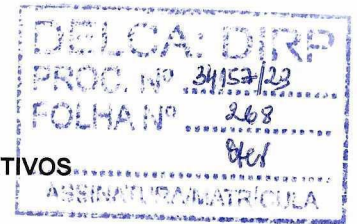 DELCA: DIRP
PROC. Nº 34157/23
FOLHA Nº 268
TIVOS
ASSINATURA/MATRÍCULA